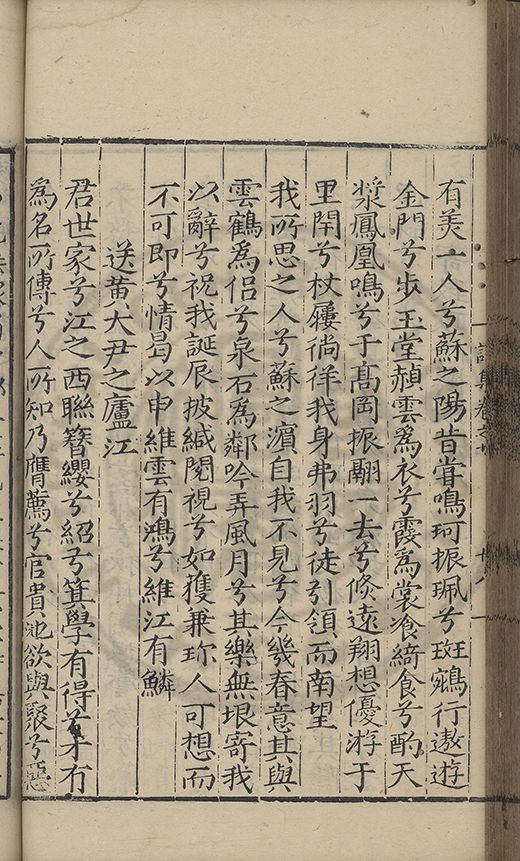 有美一人兮蘇之陽昔嘗鳴珂振珮兮斑鵷行遨遊
金門兮步玉堂赬雲為衣兮霞為裳飡綺食兮酌天
漿鳳凰鳴兮于高岡振翮一去兮倐遠翔想優游于
里閈兮杖屨徜徉我身弗羽兮徒引領而南望
我所思之人兮蘇之濵自我不見兮今幾春意其與
雲鶴為侶兮泉石為鄰吟弄風月兮其樂無垠寄我
以辭兮祝我誕辰披緘閱視兮如獲兼珎人可想而
不可即兮情曷以申維雲有鴻兮維江有鱗
送黄大尹之廬江
君世家兮江之西聯簪纓兮紹兮箕學有得兮才有
為名所傳兮人所知乃膺薦兮官貴池欲與聚兮惡